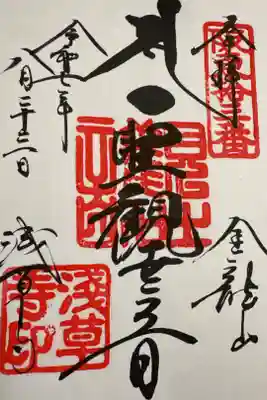 奉拝
坂東十三番
金龍山
聖觀世音
令和七年
八月二十二日
浅草寺
淺草寺印